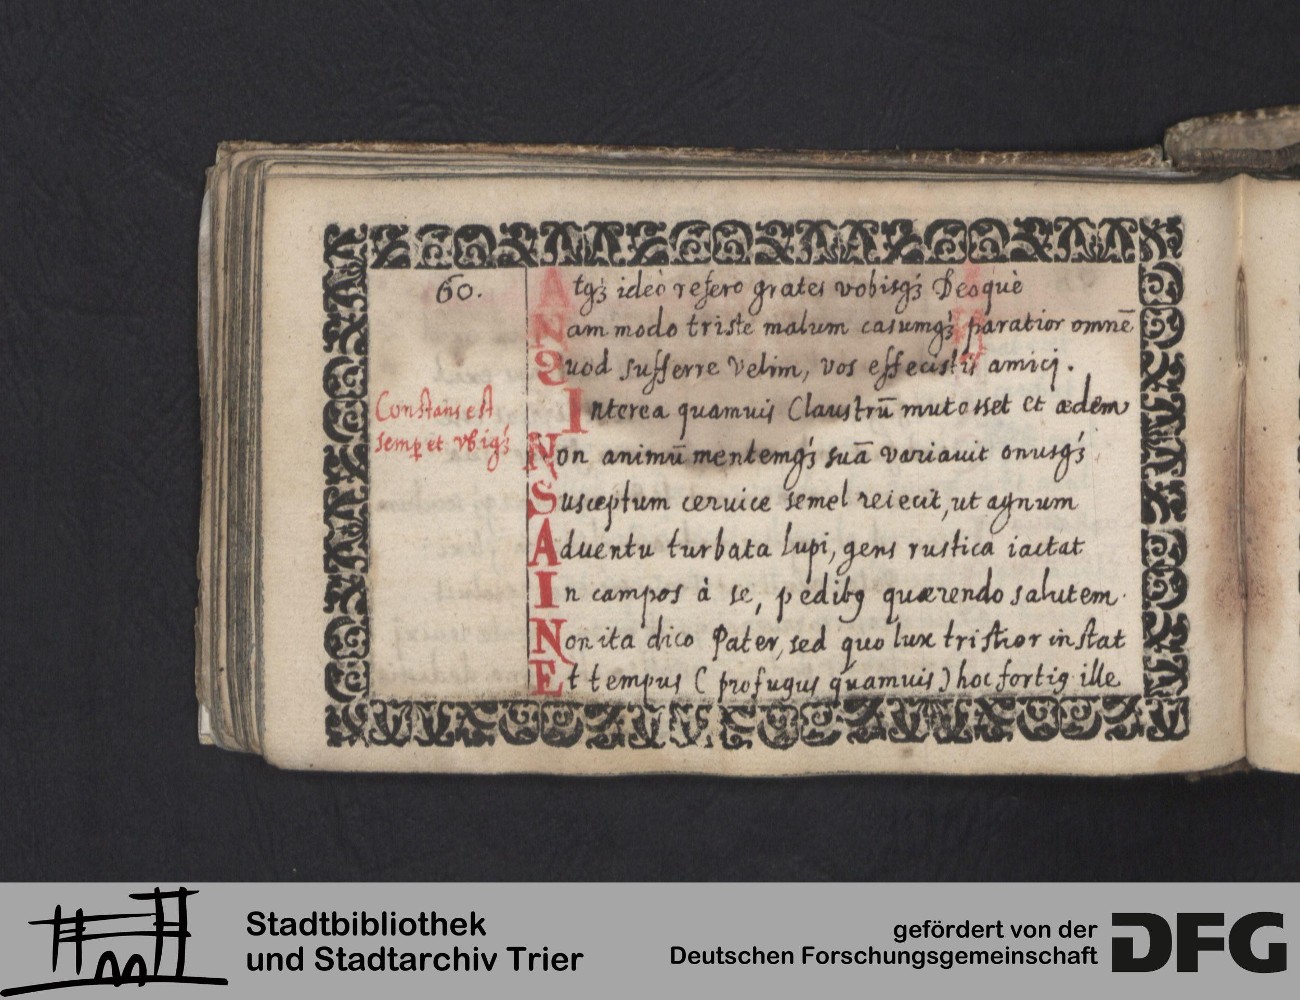 60.
Atqꝫ ideò refero grates vobisqꝫ Deoquè
Nam modo triste malum casumqꝫ paratior omnē
Quod sufferre velim, vos effecistis amici.
Interea quamuis Claustrū mutasset et ædem
Constans est
semp et vbiqꝫ
Non animū mentemqꝫ suā variauit onusqꝫ
Susceptum ceruice semel reiecit, ut agnum
Aduentu turbata lupi, gens rustica iactat
In campos à se, pedibꝫ quærendo salutem.
Non ita dico Pater, sed quo lux tristior instat
Et tempus (profugus quamuis) hoc fortiꝫ ille
Stadtbibliothek
und Stadtarchiv Trier
gefördert von der
Deutschen Forschungsgemeinschaft
DFG